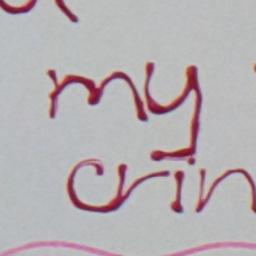 my
crin